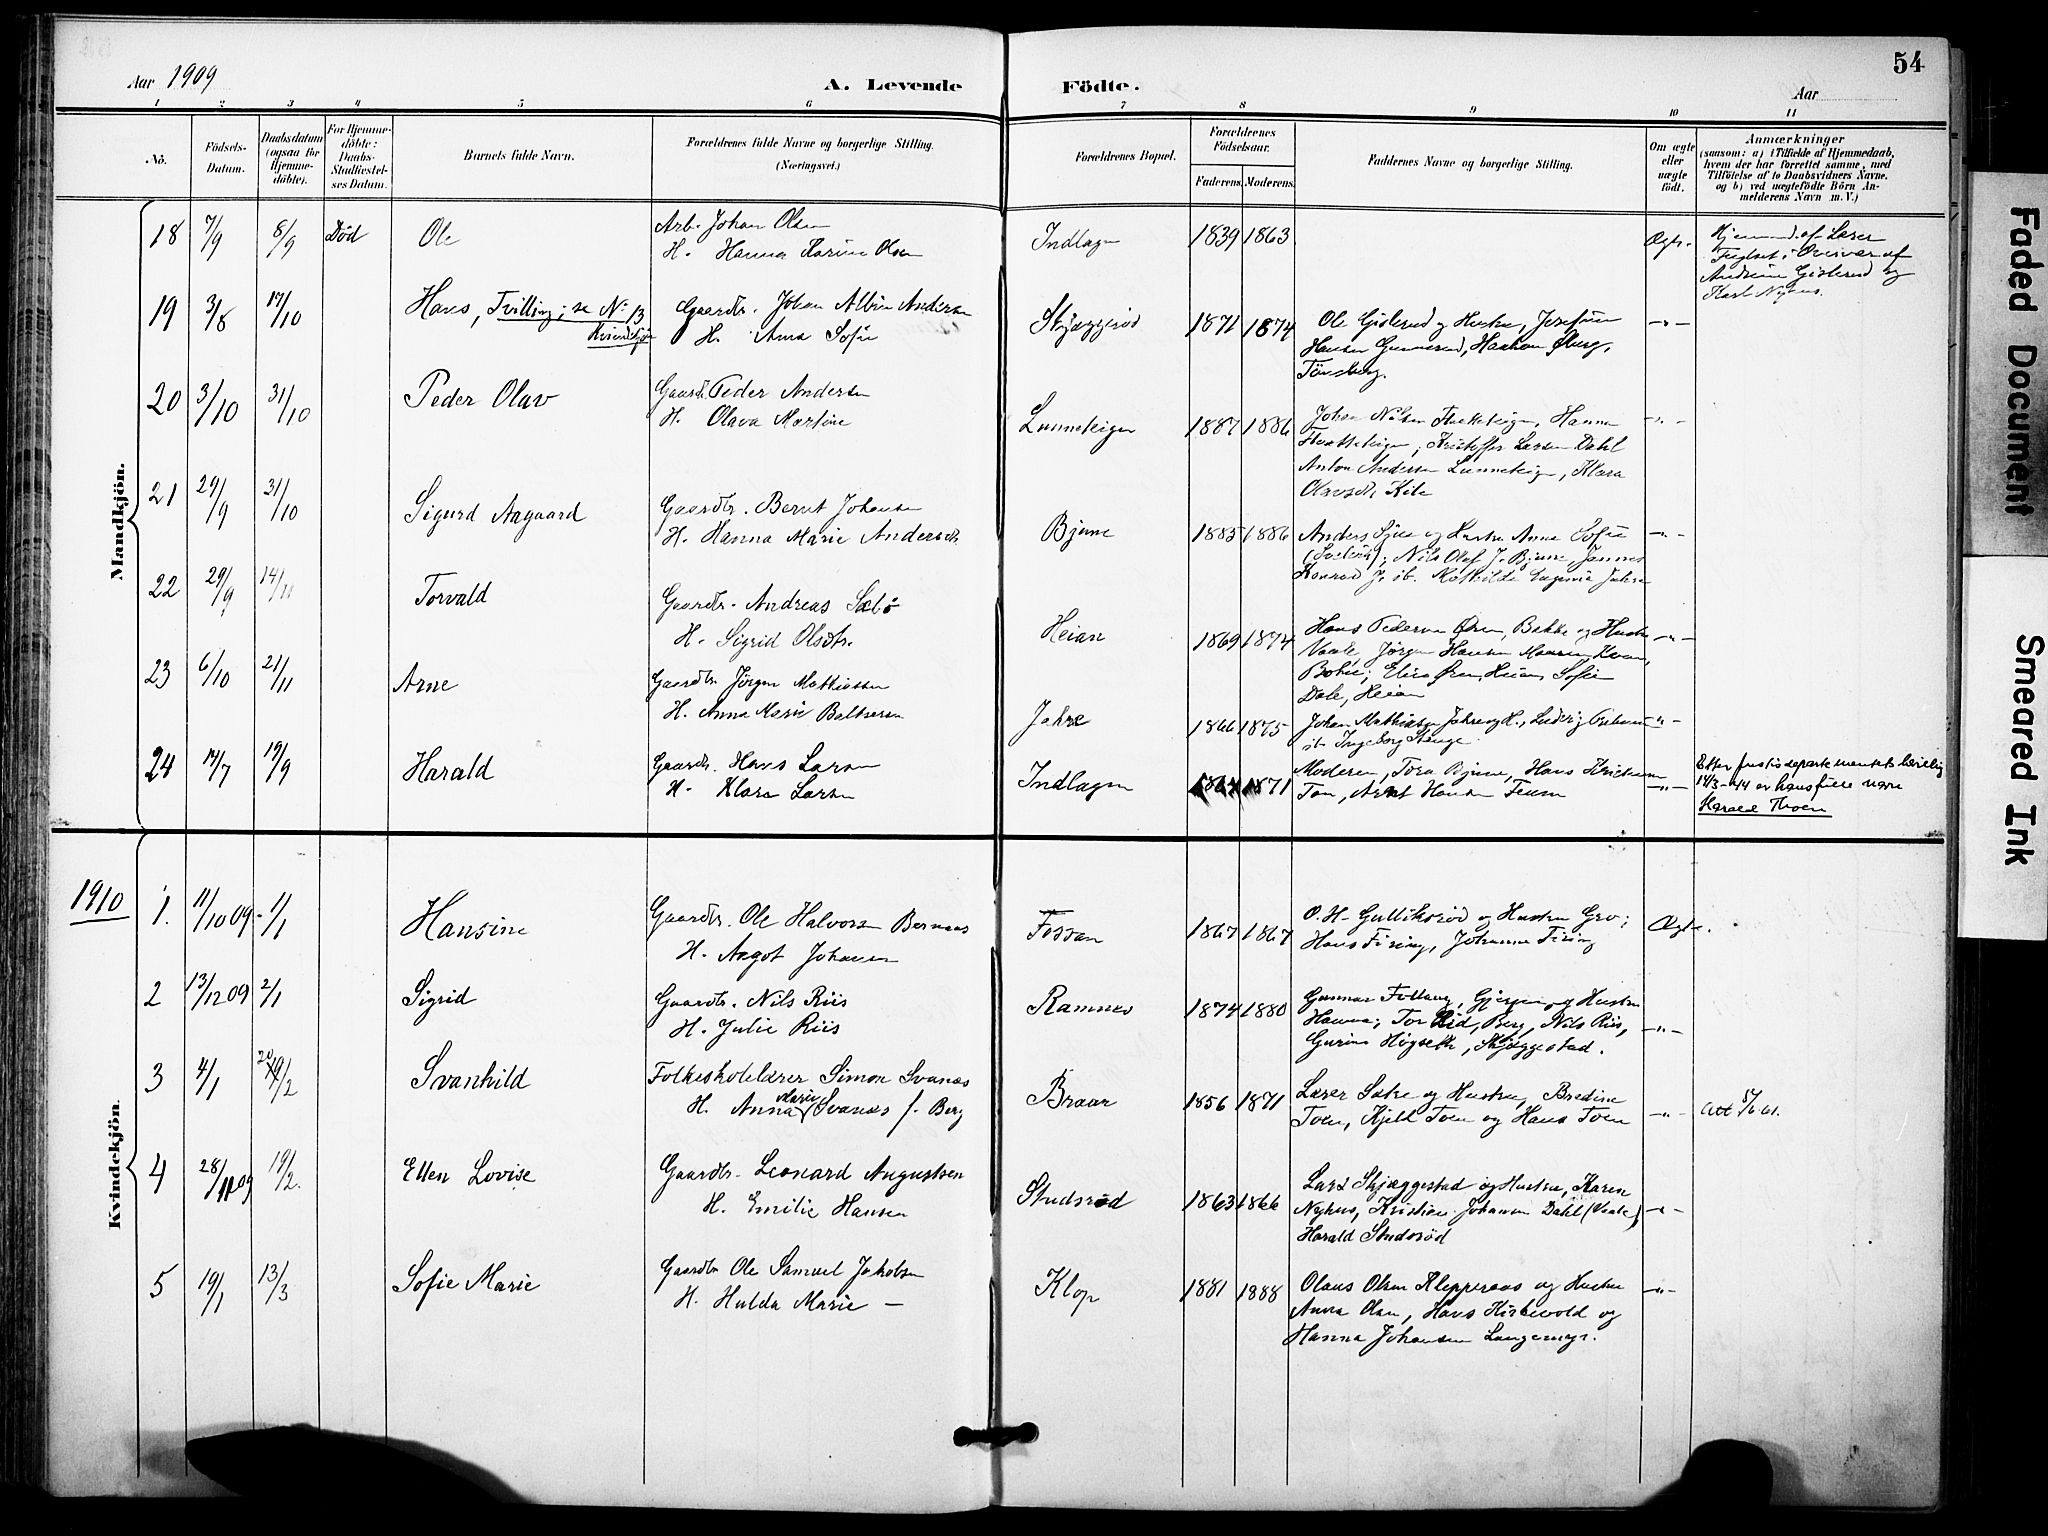 54
Aar 1909
A. Levende Födte.
Aar
1 2 3 4 5 6 7 8 9 10 11
No.
Födsels-Datum.
Daabsdatum (ogsaa for Hjemme-döbte).
For Hjemme-döbte: Daabs-Stadfæstel-ses Datum.
Barnets fulde Navn.
Forældrenes fulde Navne og borgerlige Stilling. (Næringsvei.)
Forældrenes Bopæl.
Forældrenes Födselsaar.
Faderens. Moderens.
Faddernes Navne og borgerlige Stilling.
Om ægte eller uægte födt.
Anmærkninger
(saasom: a) i Tilfælde af Hjemmedaab,
hvem der har forrettet samme, med
Tilföielse af to Daabsvidners Navne,
og b) ved uægtefödte Börn An-
melderens Navn m. V.)
Mandkjön.
18 7/9 8/9 Död Ole
Arb. Johan Olsen
H. Hanna Karine Olsen
Indlagn 1839 1863 Ægte.
Hjemmed. af Lærer
i Overvær af
Andrine Gislerud og
Karl Nyhus.
19 3/8 17/10 Hans, Tvilling; se No 13
Kvindekjön
Gaardbr. Johan Albin Andersen
H. Anna Sofie
Skjæggerød 1871 1874
Ole Gislerud og Hustru, Josefine
Hansen Gunnerud, Haakon Øberg,
Tönsberg.
-"-
20 3/10 31/10 Peder Olav
Gaardb. Peder Andersen
H. Olava Martine
Lunneteigen 1887 1886
Johan Nilsen , Hanna
; Kristoffer Larsen Dahl
Anton Andersen Lunneteigen, Klara
Olavsdtr. Kile
-"-
21 29/9 31/10 Sigurd Aagaard
Gaardbr. Bernt Johansen
H. Hanna Marie Andersdtr.
Bjune 1885 1886
Anders og Hustru Anne Sofie
(Svelvik); Nils Olaf J. Bjune
Konrad J. ib. Mathilde Eugenia Jahre
-"-
22 29/9 14/11 Torvald
Gaardbr. Andreas Sæbö
H. Sigrid Olsdtr.
Heian 1869 1874
Hans Pedersen Ören, Bakke og Hustru
Vaale Jörgen Hansen
Botne; Elise Ören, Heian, Sofie
Dale, Heian
-"-
23 6/10 21/11 Arne
Gaardbr. Jörgen Mathiassen
H. Anna Marie Baltsersen
Jahre 1866 1875
Johan Mathiasen Jahre og H., Ludvig
ib. Ingeborg Stange
-"-
24 14/7 19/9 Harald
Gaardbr. Hans Larsen
H. Klara Larsen
Indlagn 1864 1871
Moderen, Tora Bjune, Hans Kristiansen
Ton, Arnt Hansen
-"-
Efter justisdepartementets bevilling
14/3-44 er hans fulle navn
Harald Thoen
1910
Kvindekjön.
1. 11/10 09 1/1 Hansine
Gaardbr. Ole Halvorsen Bernaas
H. Aagot Johansen
Fossan 1867 1867
O. H. Gulliksröd og Hustru Gro;
Hans Firing, Johanne Firing
Ægte.
2 13/12 09 2/1 Sigrid
Gaardbr. Nils Riis
H. Julie Riis
Ramnes 1874 1880
Gunnar Follaug, Gjerpen, og Hustru
Hanna; Tor Lid, Berg, Nils Riis,
Gurine Høgseth, Skjæggestad.
-"-
3 4/1 20/2 Svanhild
Folkeskolelærer Simon Svanæs
H. Anna Marie Svanæs f. Berg
Braar 1856 1871
Lærer Sætre og Hustru, Bredine
Toen, Kjeld Toen og Hans Toen
-"- Att 5/6 61.
4 28/11 09 19/2. Ellen Lovise
Gaardbr. Leonard Augustsen
H. Emilie Hansen
Studsröd 1863 1866
Lars Skjæggestad og Hustru, Karen
Nyhus, Kristian Johansen Dahl (Vaale),
Harald Studsröd
-"-
5 19/1 13/3 Sofie Marie
Gaardbr Ole Samuel Jakobsen
H. Hulda Marie —
Klop 1881 1888
Olaus Olsen Klepperaas og Hustru
Anna Olsen, Hans Kirkevold og
Hanna Johansen Langemyr.
-"-
Faded Document
Smeared Ink